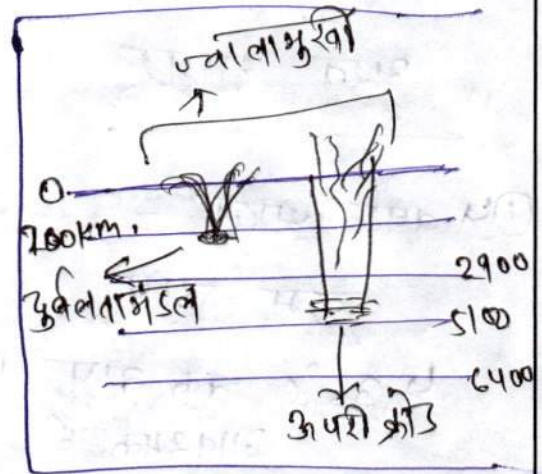 ज्वालामुखी
0
200km.
दुर्बलतामंडल
2900
5100
6400
ऊपरी क्रोड